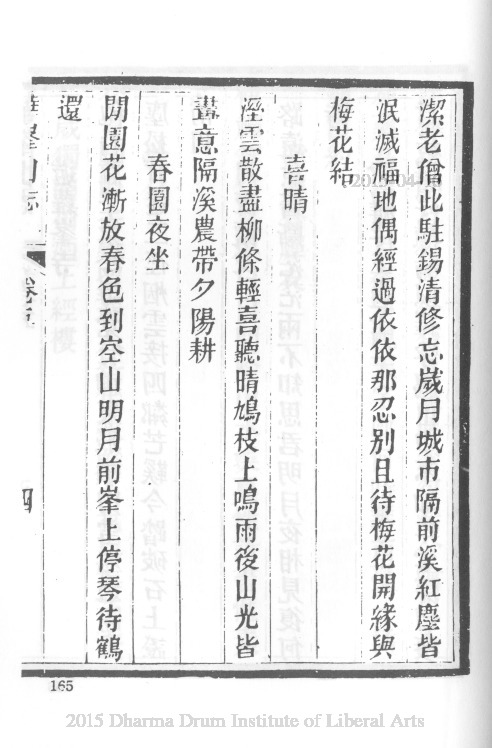 潔老僧此駐錫清修忘歲月城市隔前溪紅塵皆
泯滅福地偶經過依依那忍別且待梅花開緣與
梅花結
喜晴
溼雲散盡柳條輕喜聽晴鳩枝上鳴雨後山光皆
畫意隔溪農帶夕陽耕
春園夜坐
閒園花漸放春色到空山明月前峯上停琴待鶴
還
峯山志
卷五
四
165
2015 Dharma Drum Institute of Liberal Arts